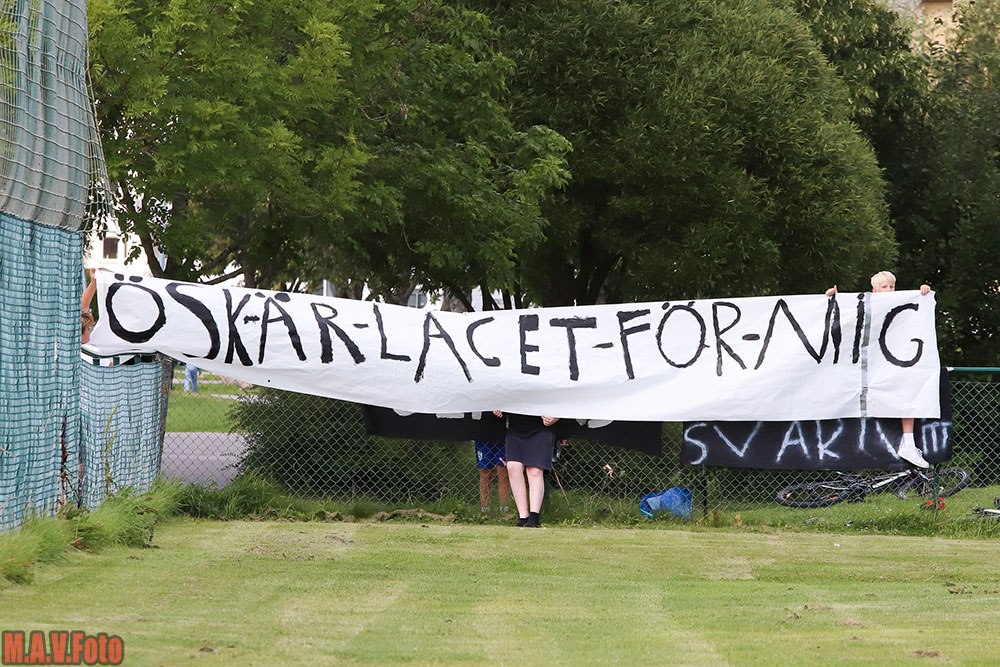 ÖSK-ÄR-LAGET-FÖR-MIG
SVARTVIT
M.A.V.Foto